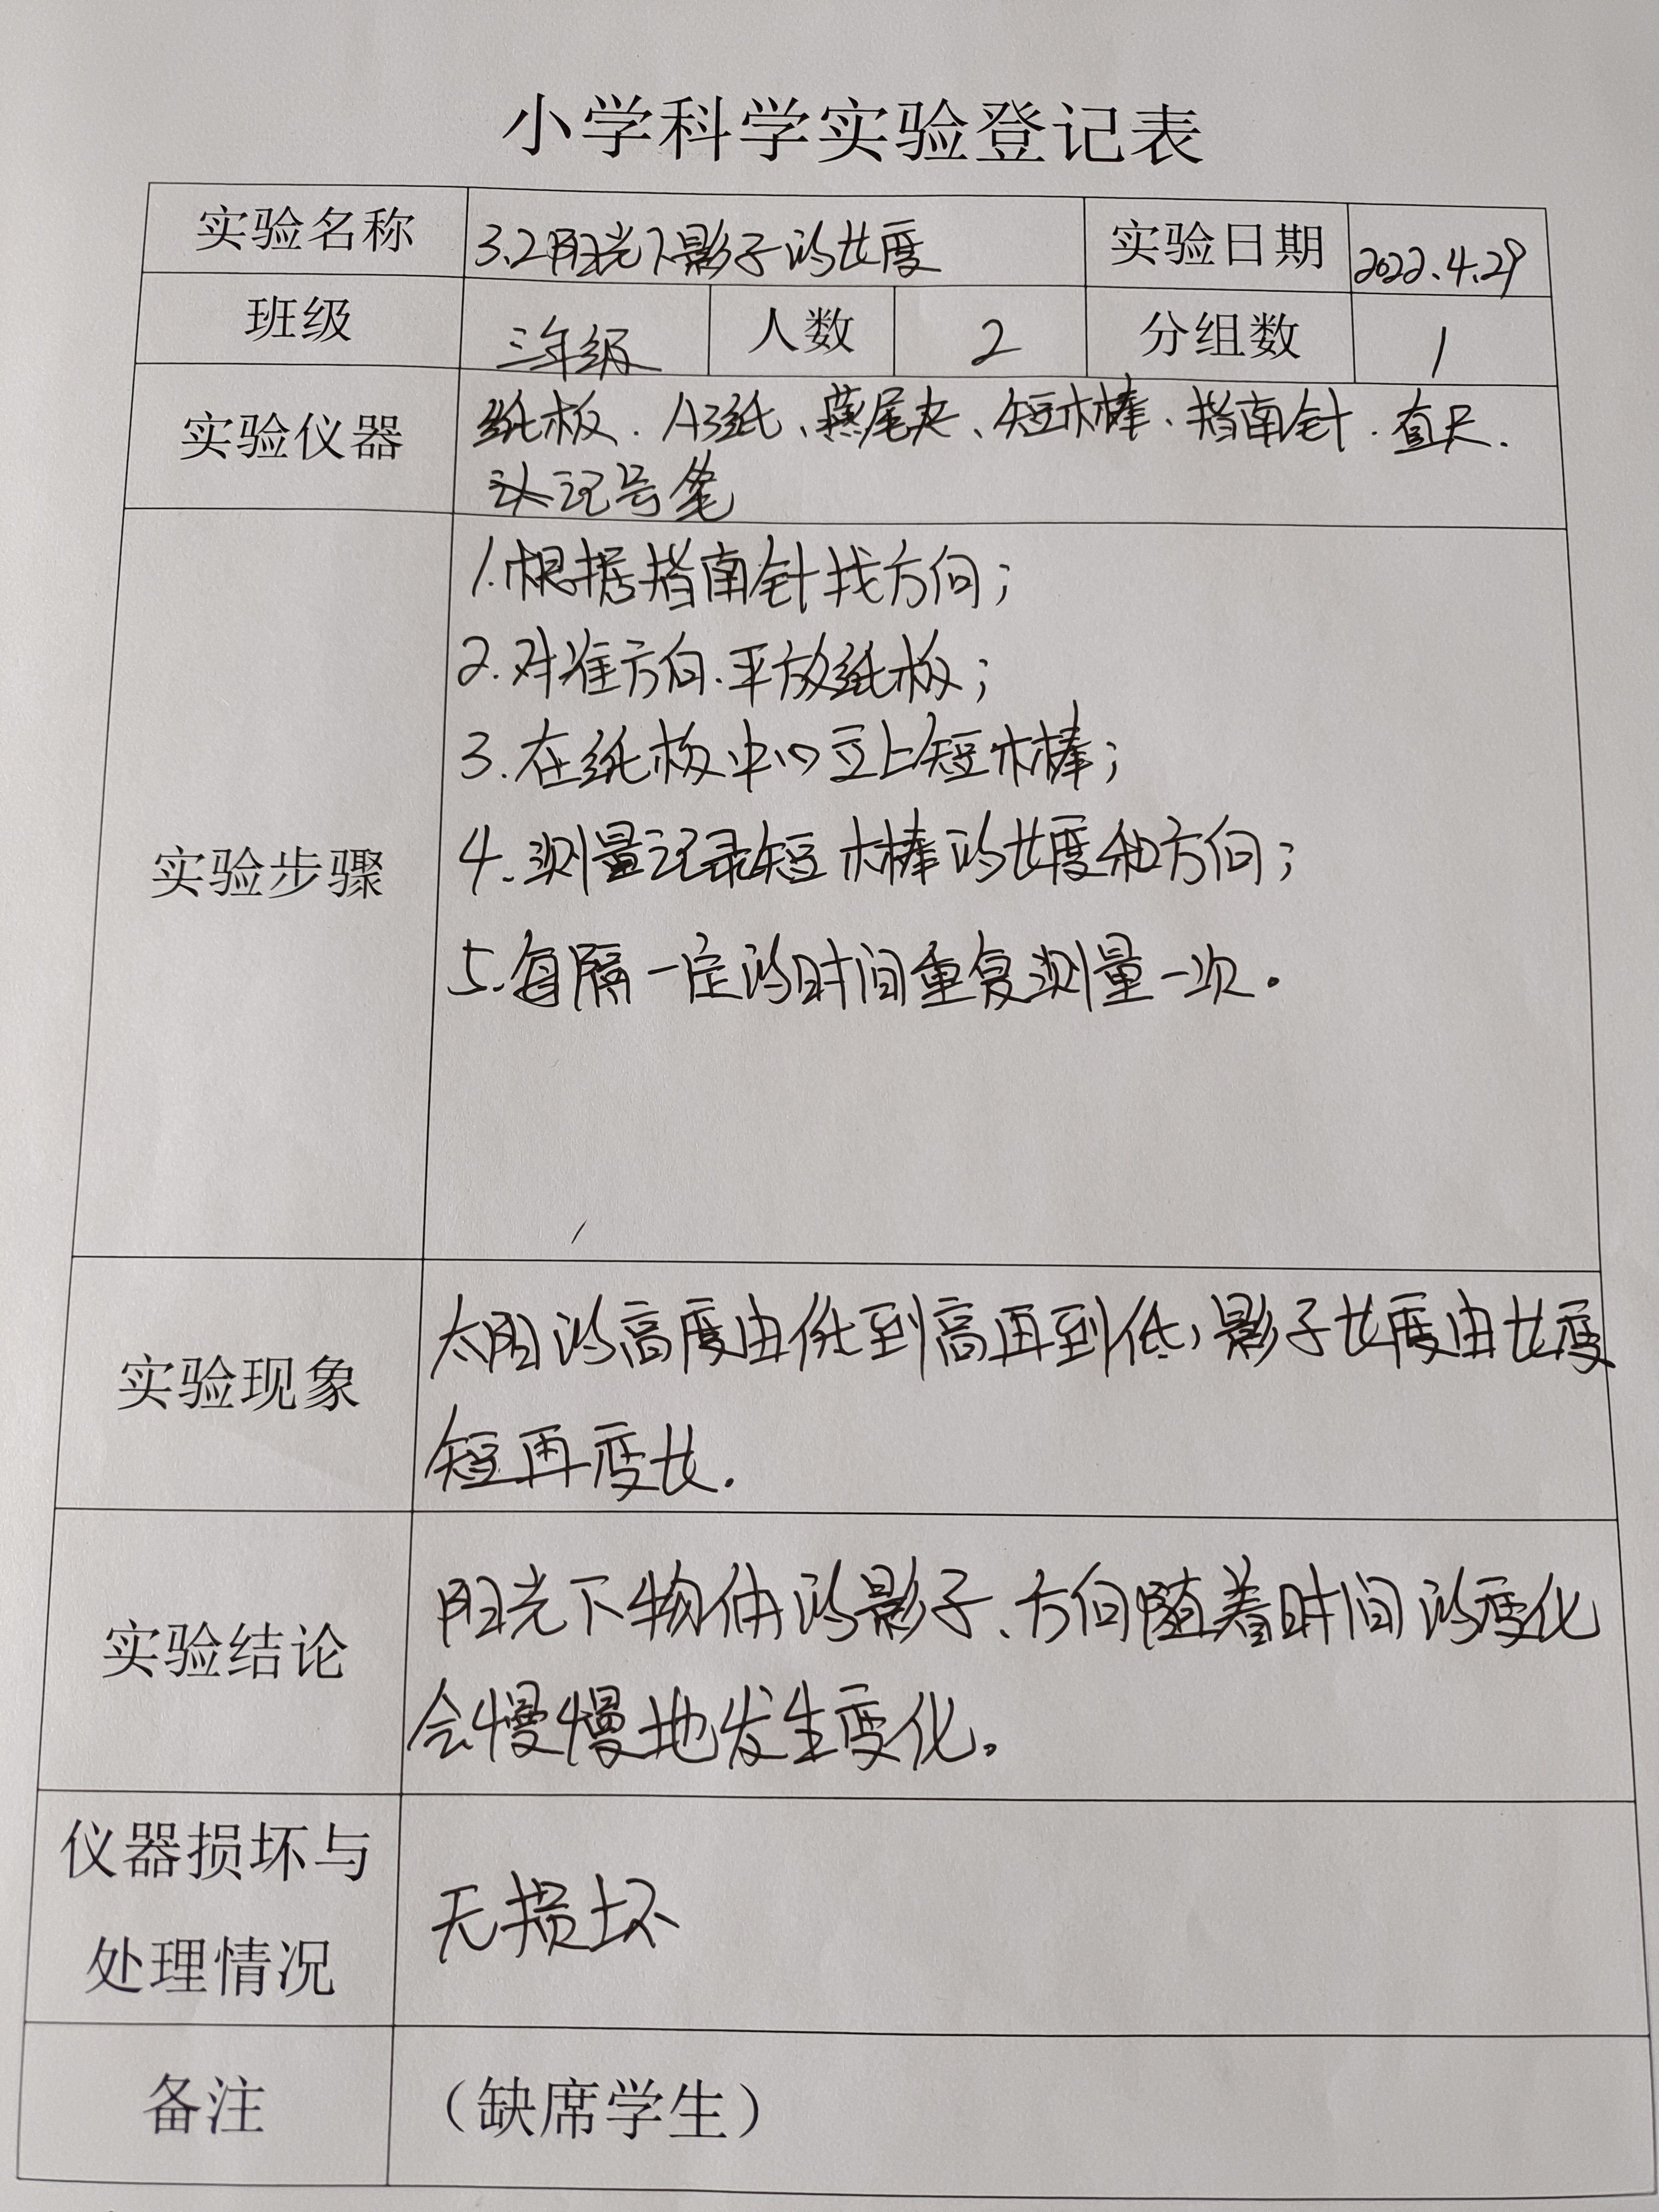 小学科学实验登记表
实验名称 3.2阳光下影子的长度 实验日期 2022.4.29
班级 三年级 人数 2 分组数 1
实验仪器 纸板、A3纸、燕尾夹、短木棒、指南针、直尺、
记号笔
实验步骤
1.根据指南针找方向;
2.对准方向、平放纸板;
3.在纸板中心立上短木棒;
4.测量记录短木棒的长度和方向;
5.每隔一定的时间重复测量一次.
实验现象 太阳的高度由低到高再到低,影子长度由长变
短再变长.
实验结论 阳光下物体的影子、方向随着时间的变化
会慢慢地发生变化。
仪器损坏与
处理情况 无损坏
备注 (缺席学生)